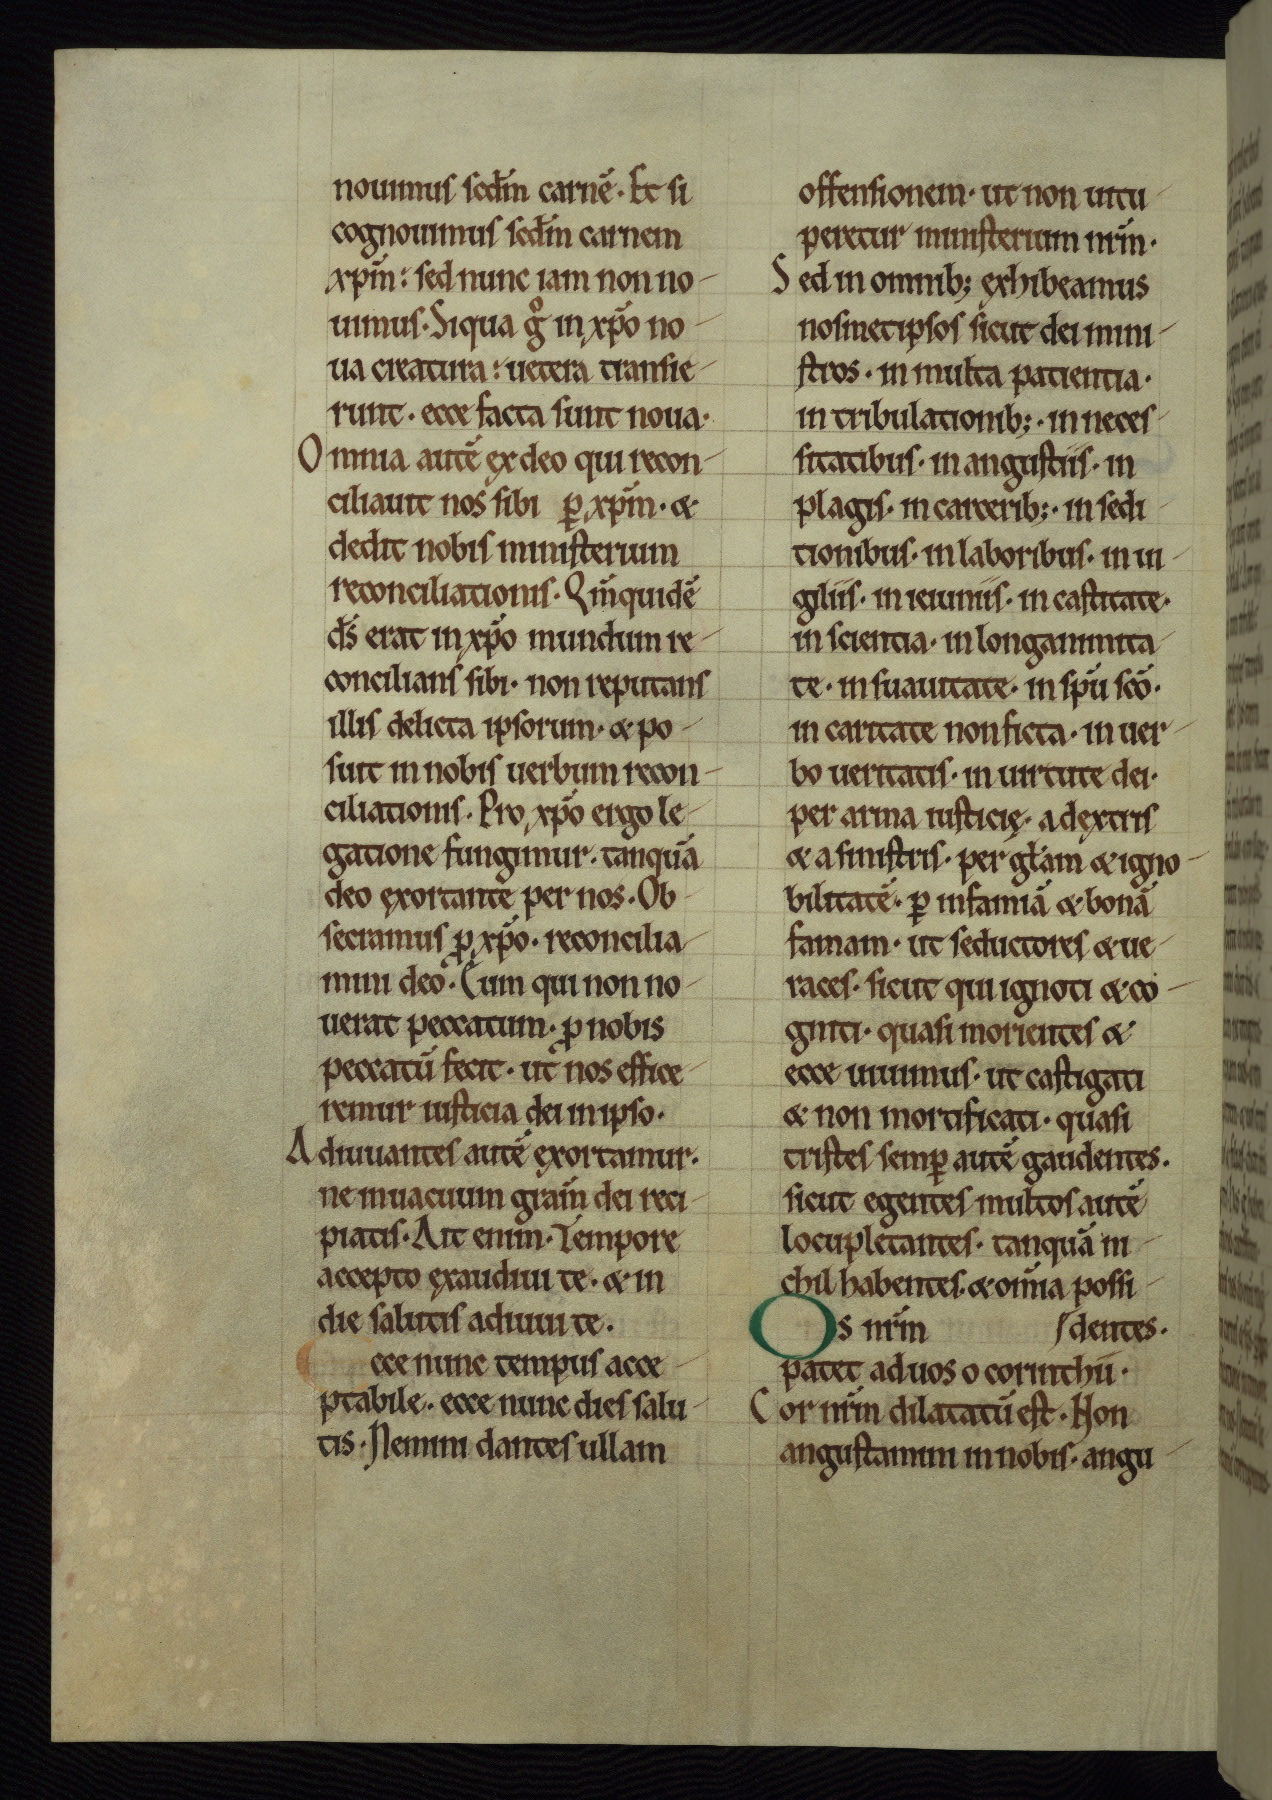 nouimus scdm̄ carnē· Et si
cognouimus scdm̄ carnem
xp̄m: sed nunc iam non no-
uimus· Siqua gͦ in xp̄o no-
ua creatura: uetera transie-
runt· ecce facta sunt noua·
Omnia autē ex deo qui recon-
ciliauit nos sibi ꝑ xp̄m· &
dedit nobis ministerium
reconciliationis· Qm̄quidē
ds̄ erat in xp̄o mundum re-
concilians sibi· non reputans
illis delicta ipsorum· & po-
suit in nobis uerbum recon-
ciliationis· Pro xp̄o ergo le-
gatione fungimur· tanquā
deo exortante per nos· Ob-
secramus ꝓ xp̄o· reconcilia-
mini deo· Eum qui non no-
uerat peccatum· ꝓ nobis
peccatū fecit· ut nos effice-
remur iusticia dei in ipso·
Adiuuantes autē exortamur·
ne inuacuum gr̄am dei reci-
piatis· Ait enim· Tempore
accepto exaudiui te· & in
die salutis adiuui te·
Ecce nunc tempus acce-
ptabile· ecce nunc dies salu-
tis· Nemini dantes ullam
offensionem· ut non uitu-
peretur ministerium nr̄m·
Sed in omnib; exhibeamus
nosmetipsos sicut dei mini-
stros· in multa patientia·
in tribulationib;· in neces-
sitatibus· in angustiis· in
plagis· in carcerib;· in sedi-
tionibus· in laboribus· in ui-
giliis· in ieiuniis· in castitate·
in scientia· in longanimita-
te· in suauitate· in sp̄u sc̄o·
in caritate non ficta· in uer-
bo ueritatis· in uirtute dei·
per arma iusticię· a dextris
& a sinistris· per gl̄am & igno-
bilitatē· ꝑ infamiā & bonā
famam· ut seductores & ue-
races· sicut qui ignoti & co-
gniti· quasi morientes &
ecce uiuimus· ut castigati
& non mortificati· quasi
tristes semꝑ autē gaudentes·
sicut egentes multos autē
locupletantes· tanquā ni-
chil habentes· & om̄ia possi-
Os nr̄m dentes·
patet ad uos o corinthii·
Cor nr̄m dilatatū est· Non
angustamini in nobis· angu-